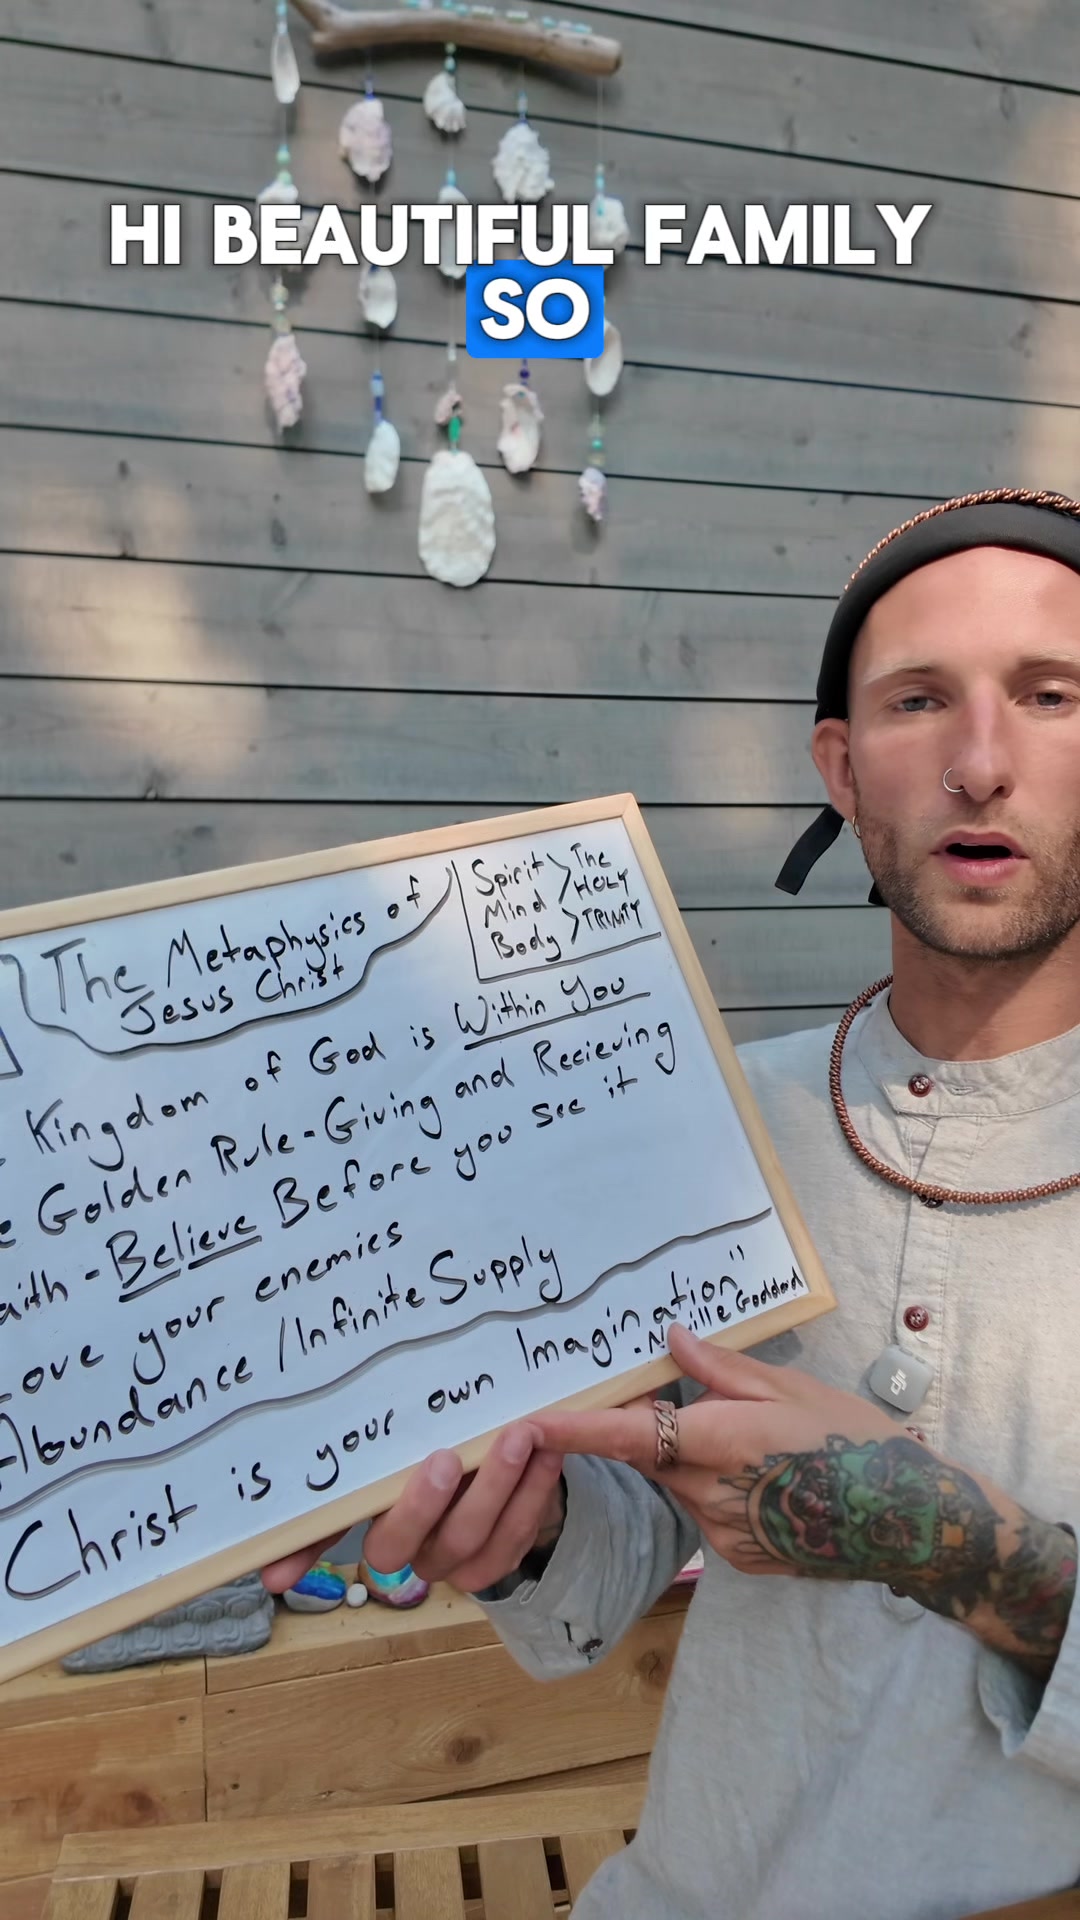 HI BEAUTIFUL FAMILY
SO
The Metaphysics of
Jesus Christ
Spirit > The
Mind HOLY
Body > TRINITY
Kingdom of God is Within You
Golden Rule - Giving and Recieving
aith - Believe Before you see it
Love your enemies
Abundance / Infinite Supply
Christ is your own Imagination"
- Neville Goddard